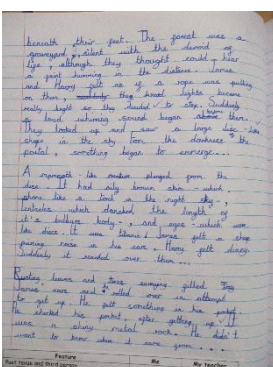 beneath their feet. The forest was a
graveyard, silent with the devoid of
life, although they thought could hear
a faint humming in the distance. James
and Harry felt as if a rope was pulling
on them, suddenly they head lights became
really bright so they decided to stop. Suddenly
a loud whirring sound began above them.
They looked up and saw a large disc-like
shape in the sky from the darkness the
portal, something began to emerge...
A mammoth-like creature plunged from the
disc. It had oily brown skin - which
shone like a torch in the night sky -,
tentacles which the length of
it's bulbous body -, and eyes - which were
like discs. It was titanic! James felt a sharp
piercing noise in his ears, Harry felt dizzy.
Suddenly it reached over them ...
leaves and swinging filled
James ears and rolled over in attempt
to get up. He felt something in his pocket.
He checked his pocket, after getting up. It
was a shiny metal rock. He didn't
want to know where it came from ....
Feature Me My teacher
Past tense and third person